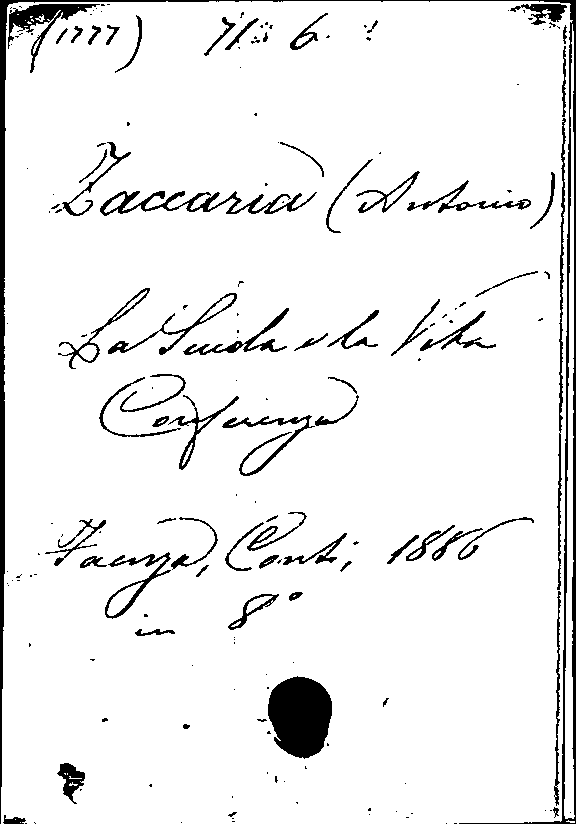 (1777) 71 6
Zaccaria (Antonio)
La Scuola e la Vita
Conferenza
Faenza, Conti, 1886
in 8°